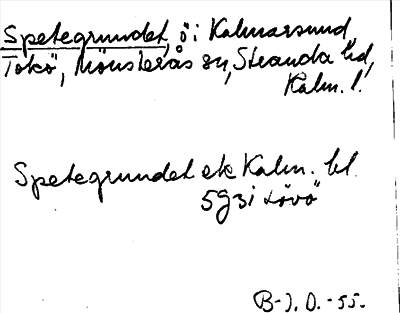 Spetegrundet, ö i Kalmarsund,
Tokö, Mönsterås sn, Stranda hd,
Kalm. l.
Spetegrundet ek Kalm. bl.
5g3i Lövö
B-J. O. -55.